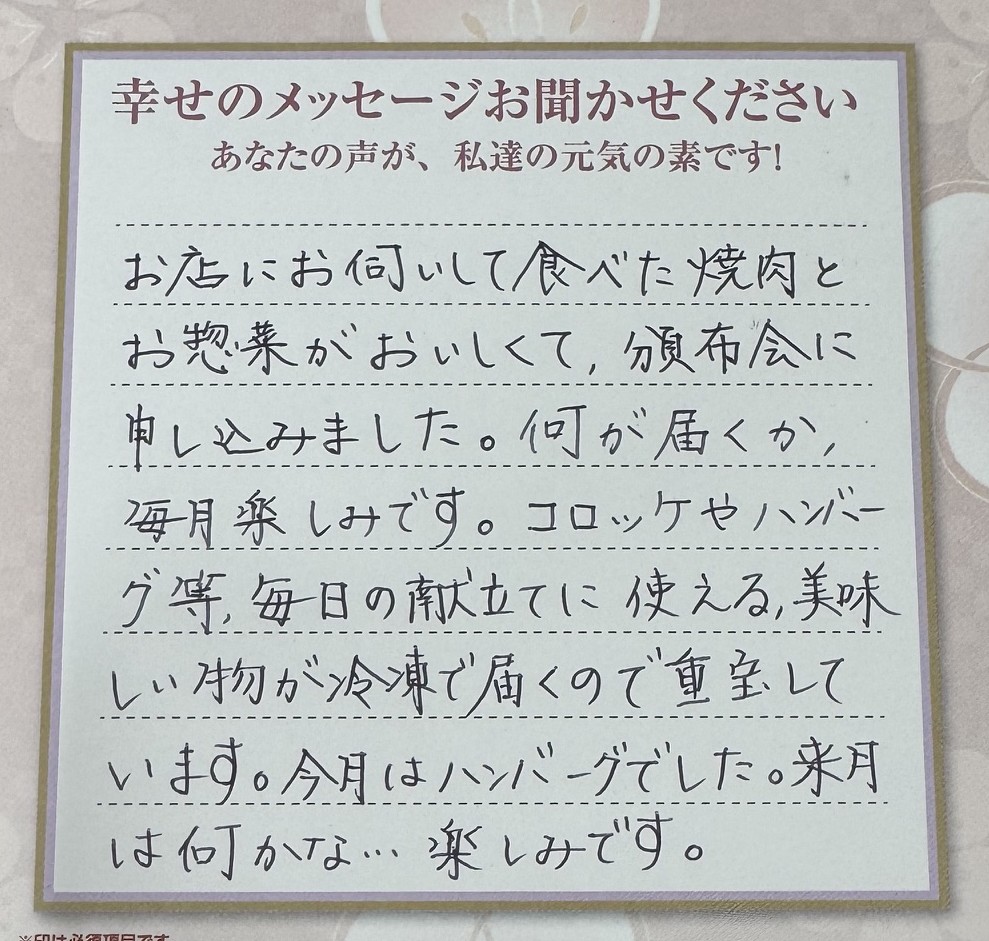 幸せのメッセージお聞かせください
あなたの声が、私達の元気の素です!
お店にお伺いして食べた焼肉と
お惣菜がおいしくて,頒布会に
申し込みました。何が届くか,
毎月楽しみです。コロッケやハンバー
グ等,毎日の献立てに使える,美味
しい物が冷凍で届くので重宝して
います。今月はハンバーグでした。来月
は何かな…楽しみです。
※印は必須項目です